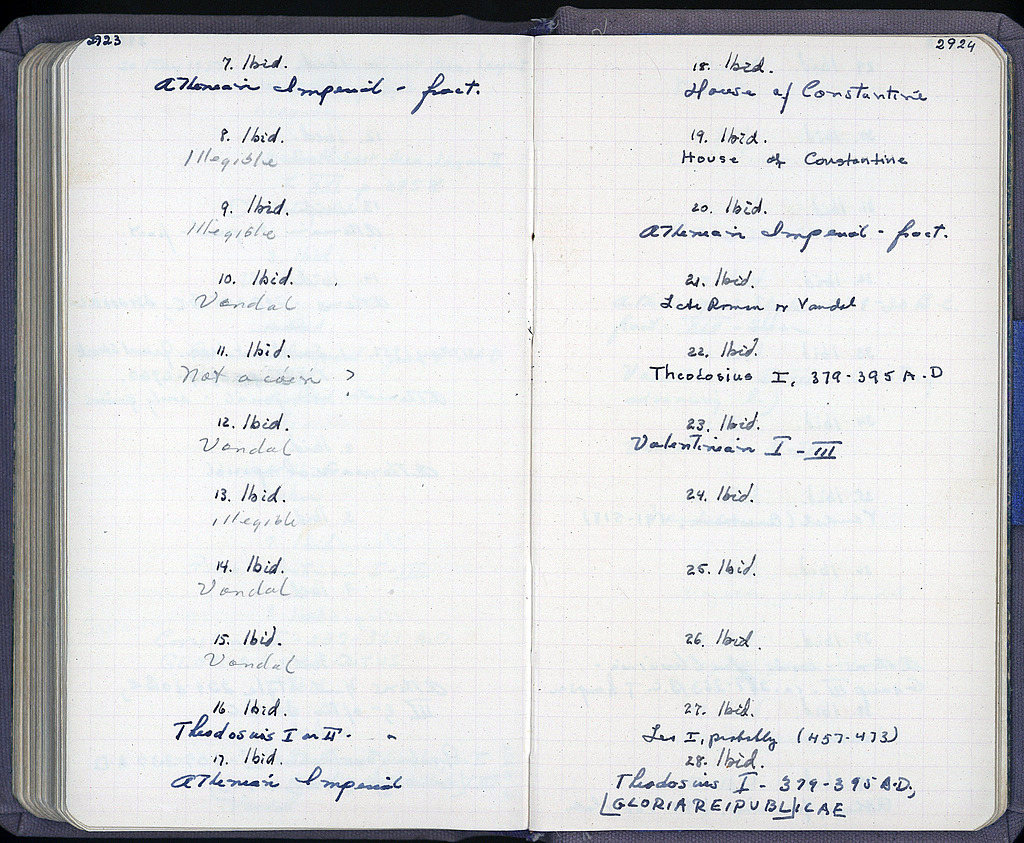 2923
7. Ibid.
Athenian Imperial - fract.
8. Ibid.
Illegible
9. Ibid.
Illegible
10. Ibid.
Vandal
11. Ibid.
Not a coin ?
12. Ibid.
Vandal
13. Ibid.
Illegible
14. Ibid.
Vandal
15. Ibid.
Vandal
16. Ibid.
Theodosius I or II.
17. Ibid.
Athenian Imperial
2924
18. Ibid.
House of Constantine
19. Ibid.
House of Constantine
20. Ibid.
Athenian Imperial - fract.
21. Ibid.
Late Roman or Vandal
22. Ibid.
Theodosius I, 379-395 A.D
23. Ibid.
Valentinian I - III
24. Ibid.
25. Ibid.
26. Ibid.
27. Ibid.
Leo I, probably (457-473)
28. Ibid.
Theodosius I - 379-395 A.D.,
[GLORIA REIPUBL]ICAE